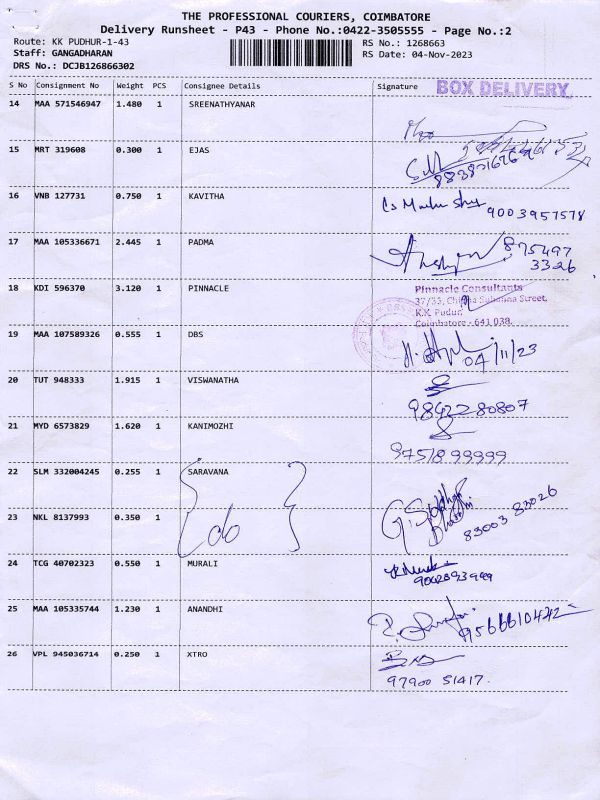 THE PROFESSIONAL COURIERS, COIMBATORE
Delivery Runsheet - P43 - Phone No.:0422-3505555 - Page No.:2
Route: KK PUDHUR-1-43
Staff: GANGADHARAN
DRS No.: DCJB126866302
RS No.: 1268663
RS Date: 04-Nov-2023
S No Consignment No Weight PCS Consignee Details Signature BOX DELIVERY
14 MAA 571546947 1.480 1 SREENATHYANAR
15 MRT 319608 0.300 1 EJAS
16 VNB 127731 0.750 1 KAVITHA 9003957578
17 MAA 105336671 2.445 1 PADMA 875497
3326
18 KDI 596370 3.120 1 PINNACLE Pinnacle Consultants
37/33, Subanna Street,
K.K. Pudur,
Coimbatore - 641 038.
19 MAA 107589326 0.555 1 DBS 04/11/23
20 TUT 948333 1.915 1 VISWANATHA
9842280807
21 MYD 6573829 1.620 1 KANIMOZHI
97518 99999
22 SLM 332004245 0.255 1 SARAVANA
23 NKL 8137993 0.350 1 do 83003 83026
24 TCG 40702323 0.550 1 MURALI
25 MAA 105335744 1.230 1 ANANDHI 9566610442
26 VPL 945036714 0.250 1 XTRO
97900 51417.